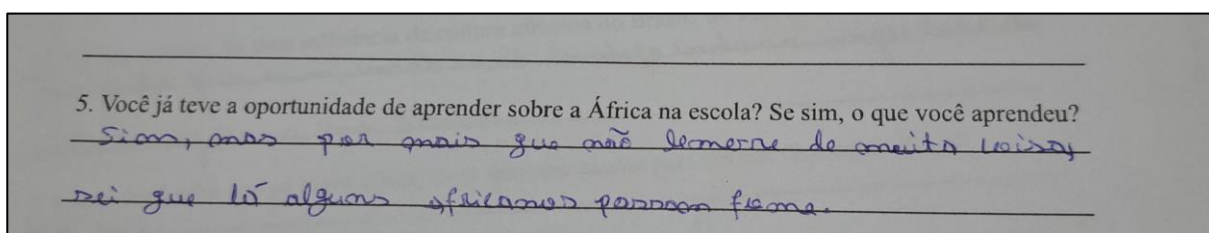 5. Você já teve a oportunidade de aprender sobre a África na escola? Se sim, o que você aprendeu?
Sim, mas por mais que não lemerre de muita coisa,
sei que lá alguns africanos passam fome.